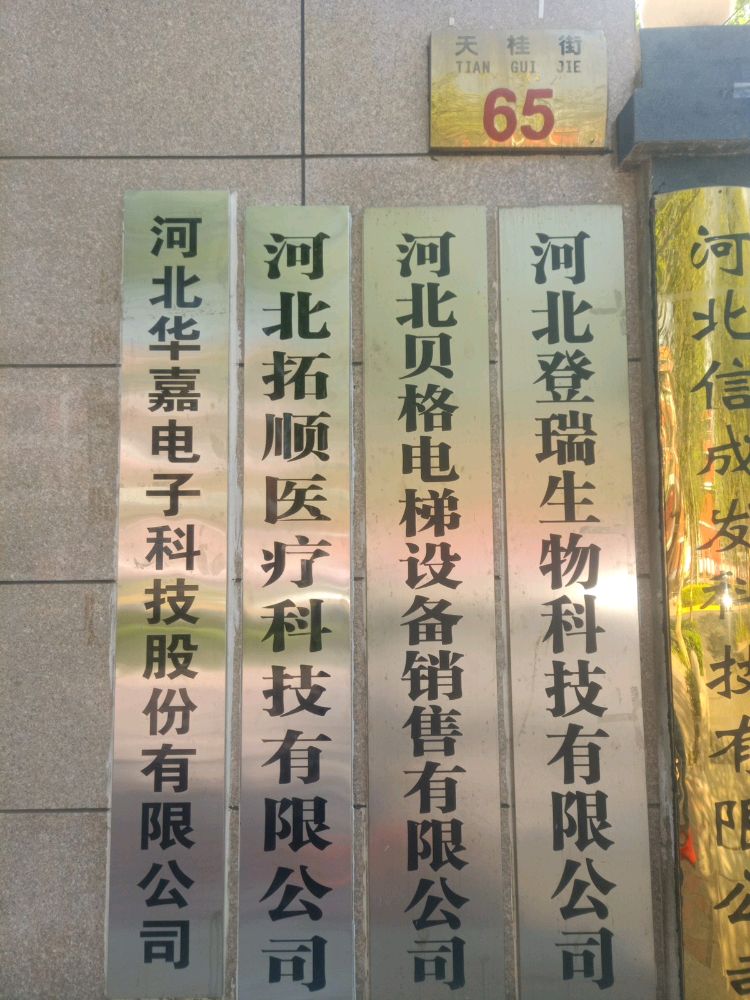 天桂街
TIAN GUI JIE
65
河北华嘉电子科技股份有限公司
河北拓顺医疗科技有限公司
河北贝格电梯设备销售有限公司
河北登瑞生物科技有限公司
河北信成发科技有限公司